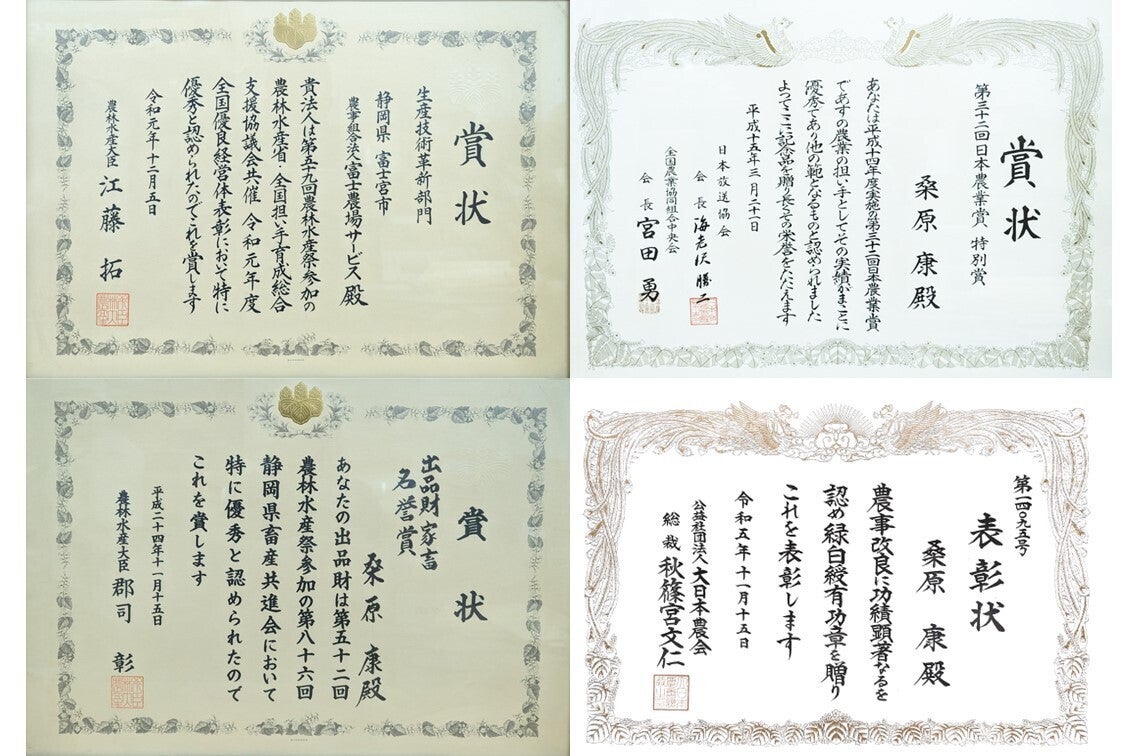 賞状
生産技術革新部門
静岡県 富士宮市
農事組合法人富士農場サービス殿
貴法人は第五十九回農林水産祭参加の
農林水産省、全国担い手育成総合
支援協議会共催 令和元年度
全国優良経営体表彰において特に
優秀と認められたのでこれを賞します
令和元年十二月五日
農林水産大臣 江藤 拓
賞状
第三十二回日本農業賞 特別賞
桑原 康殿
あなたは平成十四年度実施の第三十二回日本農業賞
であすの農業の担い手としてその実績がまことに
優秀であり他の範となるものと認められました
よってここに記念品を贈り長くその栄誉をたたえます
平成十五年三月二十一日
日本放送協会
会長 海老沢勝二
全国農業協同組合中央会
会長 宮田勇
賞状
出品財 家畜
名誉賞
桑原 康殿
あなたの出品財は第五十二回
農林水産祭参加の第八十六回
静岡県畜産共進会において
特に優秀と認められたので
これを賞します
平成二十四年十一月十五日
農林水産大臣 郡司 彰
第一四〇九五号
表彰状
桑原 康殿
農事改良に功績顕著なるを
認め緑白綬有功章を贈り
これを表彰します
令和五年十一月十五日
公益社団法人大日本農会
総裁 秋篠宮文仁